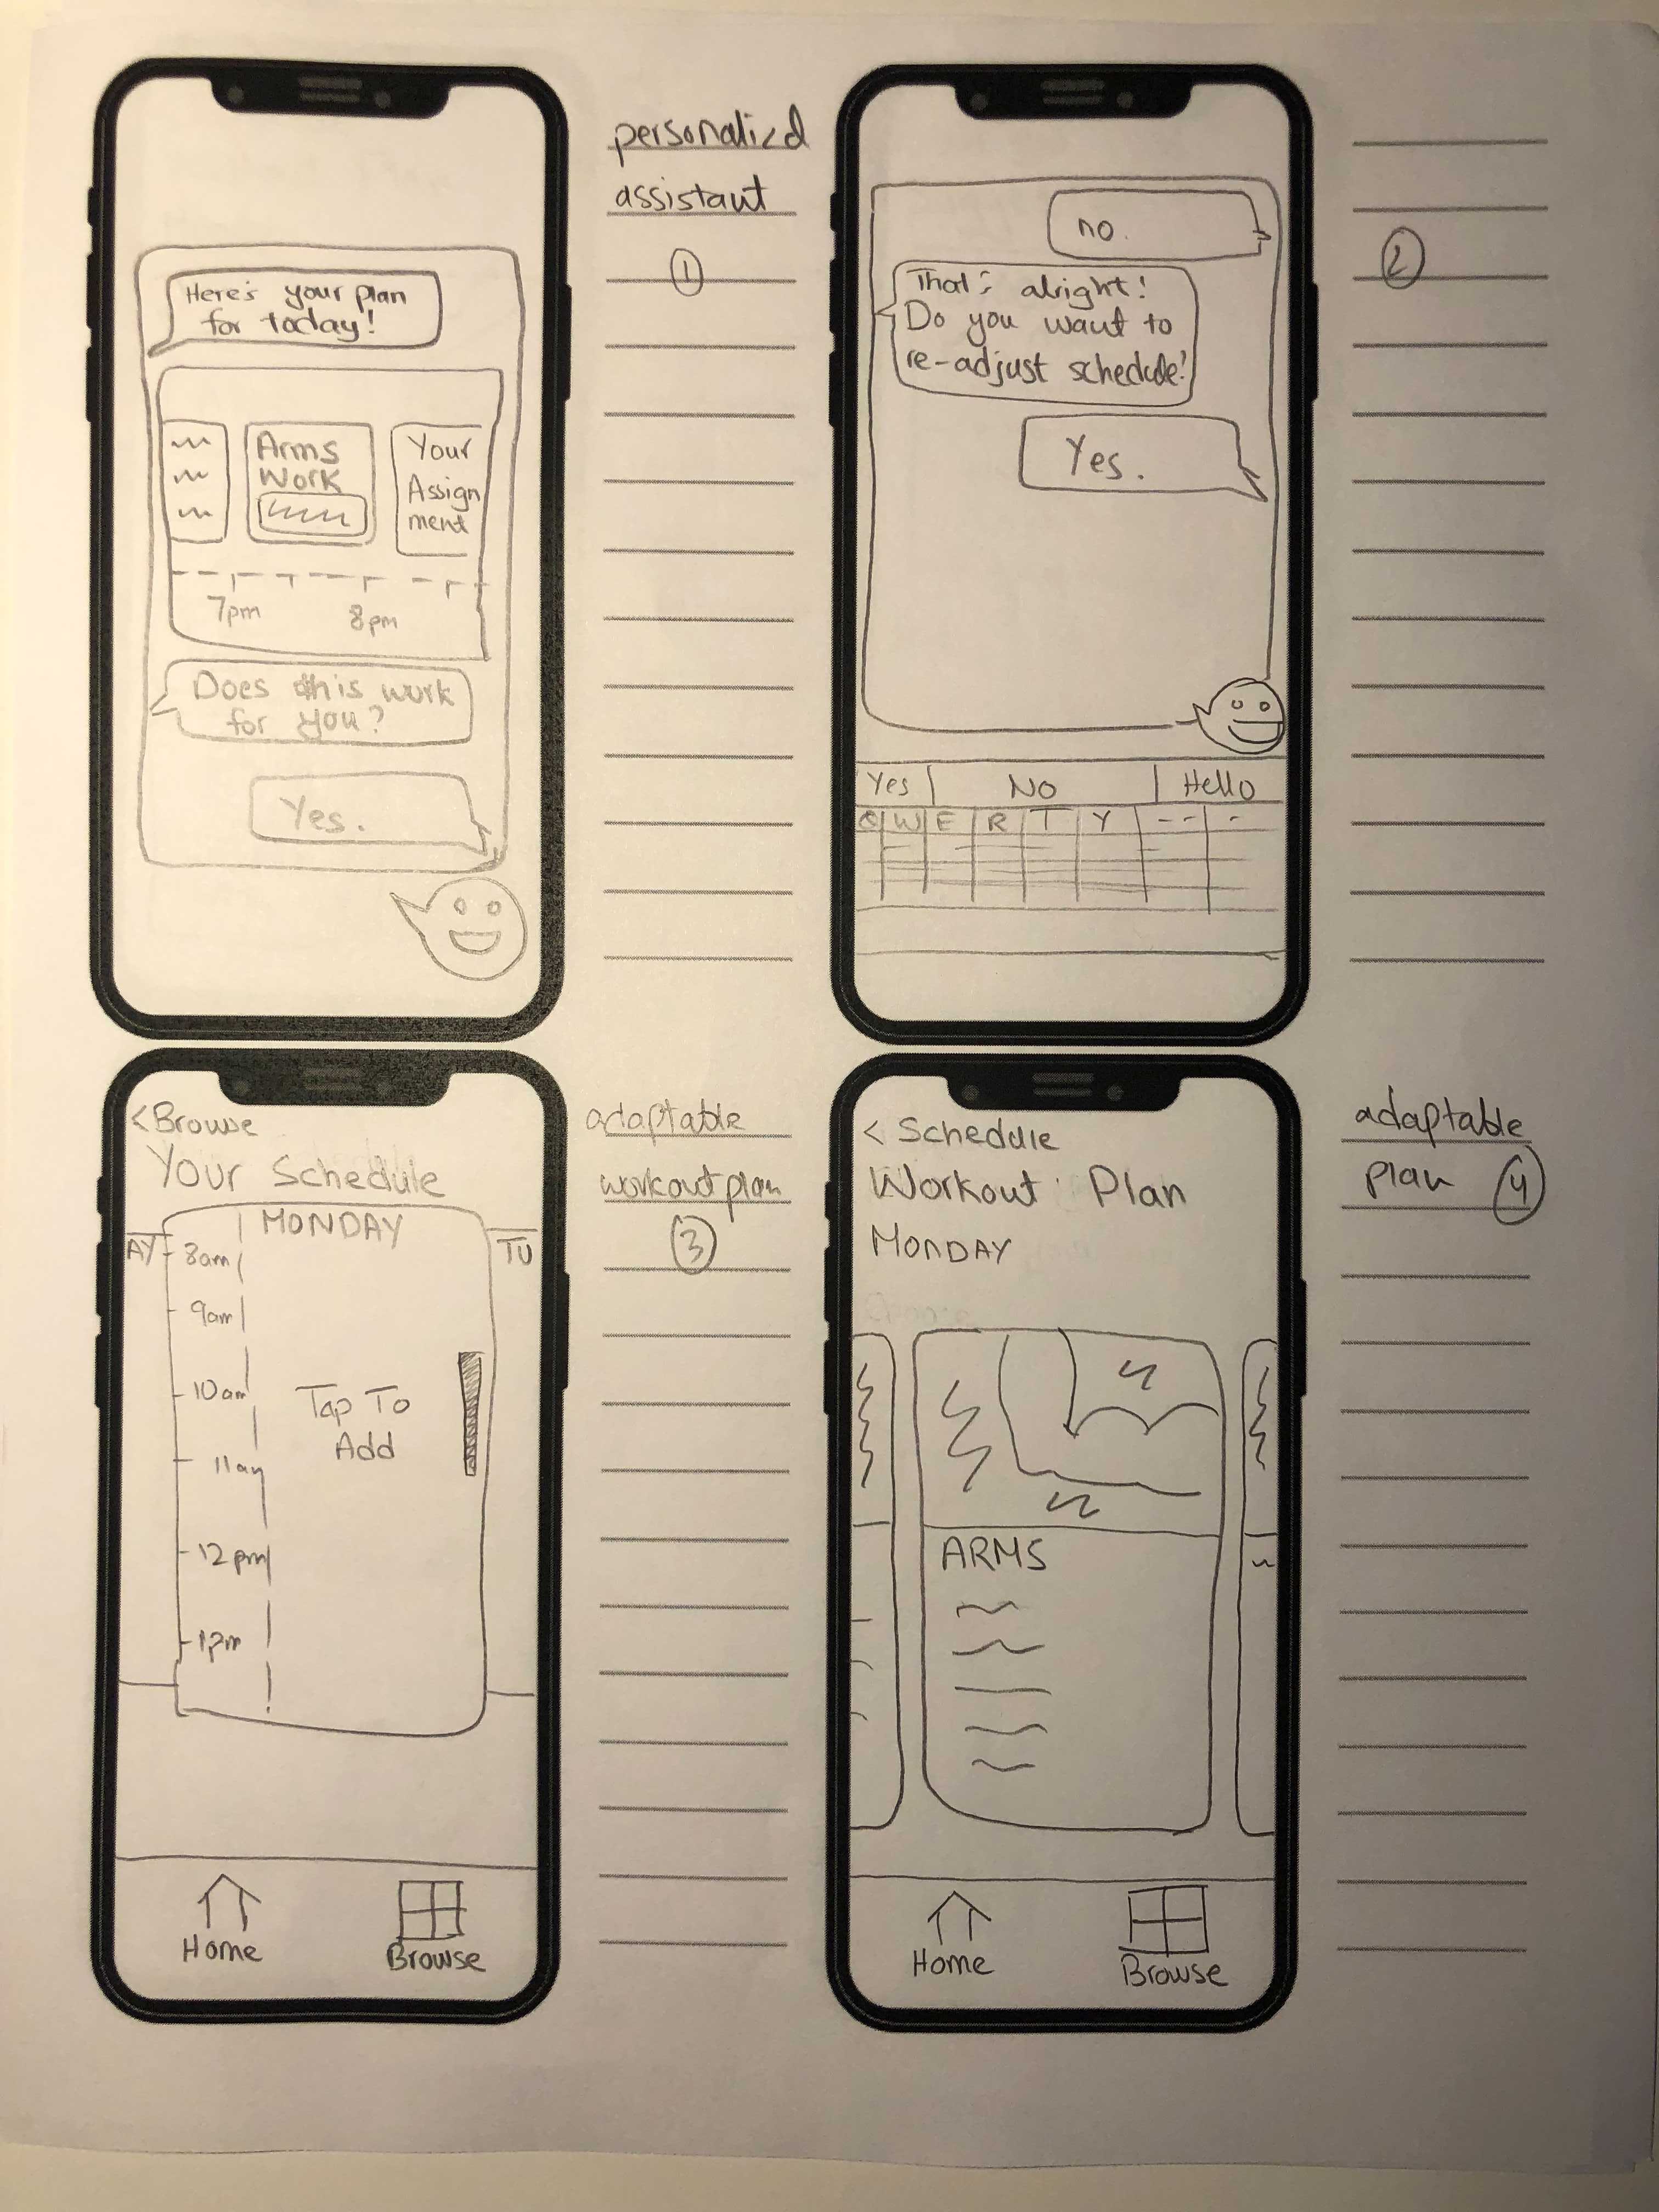 Here's your plan
for today!
Arms
Work
Your
Assign
ment
7pm
8pm
Does this work
for you?
Yes.
personalizd
assistant
1
no.
That's alright!
Do you want to
re-adjust schedule!
Yes.
Yes No Hello
Q W E R T Y
2
< Browse
Your Schedule
MONDAY
AY
TU
8am
9am
10am
Tap To
Add
11am
12pm
1pm
Home Browse
adaptable
workout plan
3
< Schedule
Workout Plan
MONDAY
ARMS
Home Browse
adaptable
plan 4